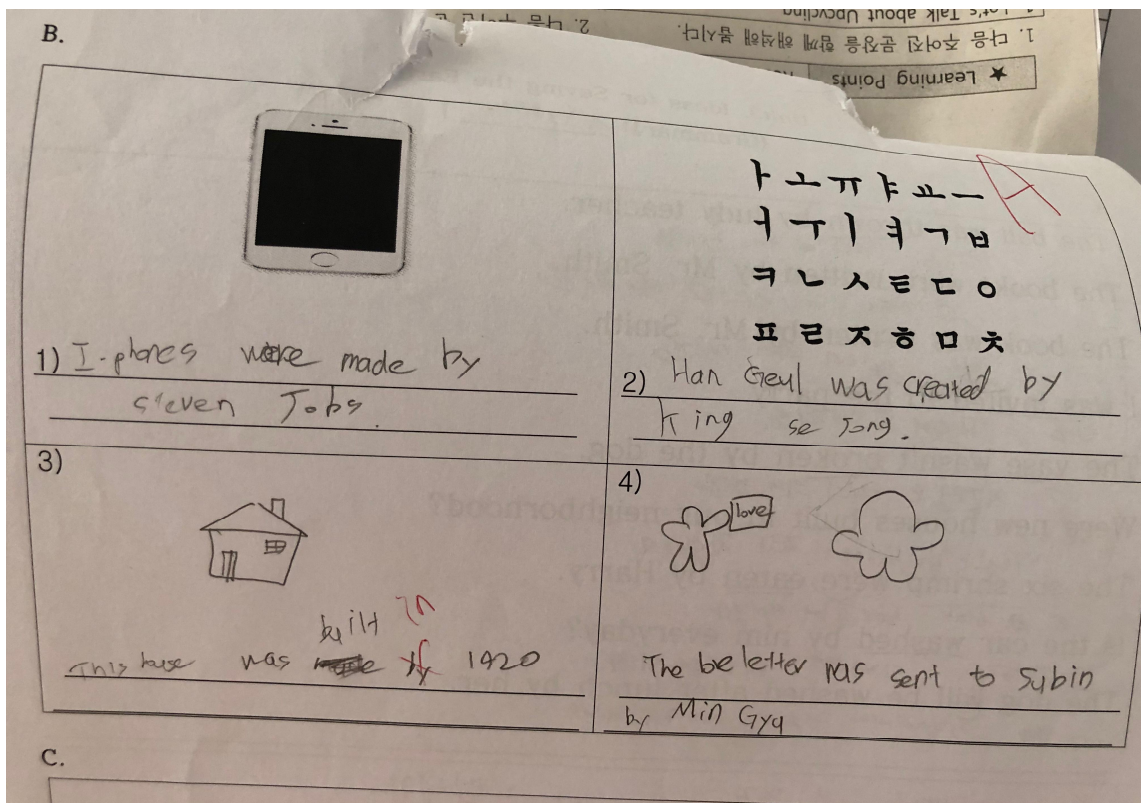 ★ Learning Points
1. 다음 주어진 문장을 함께 해석해 봅시다.
Let's Talk about Upcycling
B.
ㅏ ㅗ ㅠ ㅑ ㅛ ㅡ
A
ㅓ ㅜ ㅣ ㅕ ㄱ ㅂ
ㅋ ㄴ ㅅ ㅌ ㄷ ㅇ
ㅍ ㄹ ㅈ ㅎ ㅁ ㅊ
1) I-phones were made by
steven Jobs.
2) Han Geul was created by
King se Jong.
3)
built in
This house was 1920
4)
love
The be letter was sent to Subin
by Min Gyu
C.